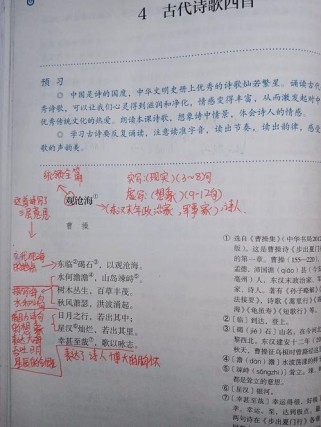 4 古代诗歌四首
预 习
◎ 中国是诗的国度，中华文明史册上优秀的诗歌灿若繁星。诵读古代
秀诗歌，可以让我们心灵得到滋润和净化，情感变得丰富，从而激发起对中
优秀传统文化的热爱。朗读本课诗歌，想象诗中情景，体会诗人的情感。
◎ 学习古诗要反复诵读，注意读准字音，读出节奏，读出韵律，感受
歌的声韵美。
统领全篇
实写:(现实)(3~8句)
虚写:(想象)(9-12句)
观沧海①
(东汉末年政治家,军事家),诗人
曹 操
东临②碣石③，以观沧海。
水何澹澹④，山岛竦峙⑤。
树木丛生，百草丰茂。
秋风萧瑟，洪波涌起。
日月之行，若出其中；
星汉⑥灿烂，若出其里。
幸甚至哉⑦，歌以咏志。
表达了诗人博大的胸怀
① 选自《曹操集》（中华书局2012
版）。这是曹诗《步出夏门行》
的第一章。曹操（155—220），
孟德，沛国谯（qiáo）县（今
亳州）人，东汉末政治家、军
家、诗人。著有《孙子略解》
法接要》，诗歌《蒿里行》《观
海》《龟虽寿》《短歌行》等。
② [临] 到达，登上。
③ [碣（jié）石] 山名，在今河北
黎西北。汉建安十二年（20
秋天，曹操征乌桓时曾经过此
④ [澹（dàn）澹] 水波荡漾的样子
⑤ [竦峙（sǒngzhì）] 耸立。竦、峙
都是耸立的意思。
⑥ [星汉] 银河。
⑦ [幸甚至哉] 幸运得很，好极
幸，幸运。至，达到极点。最
两句诗在《步出夏门行》各章